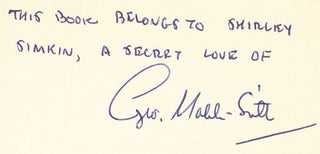 THIS BOOK BELONGS TO SHIRLEY
SIMKIN, A SECRET LOVE OF
Geo.